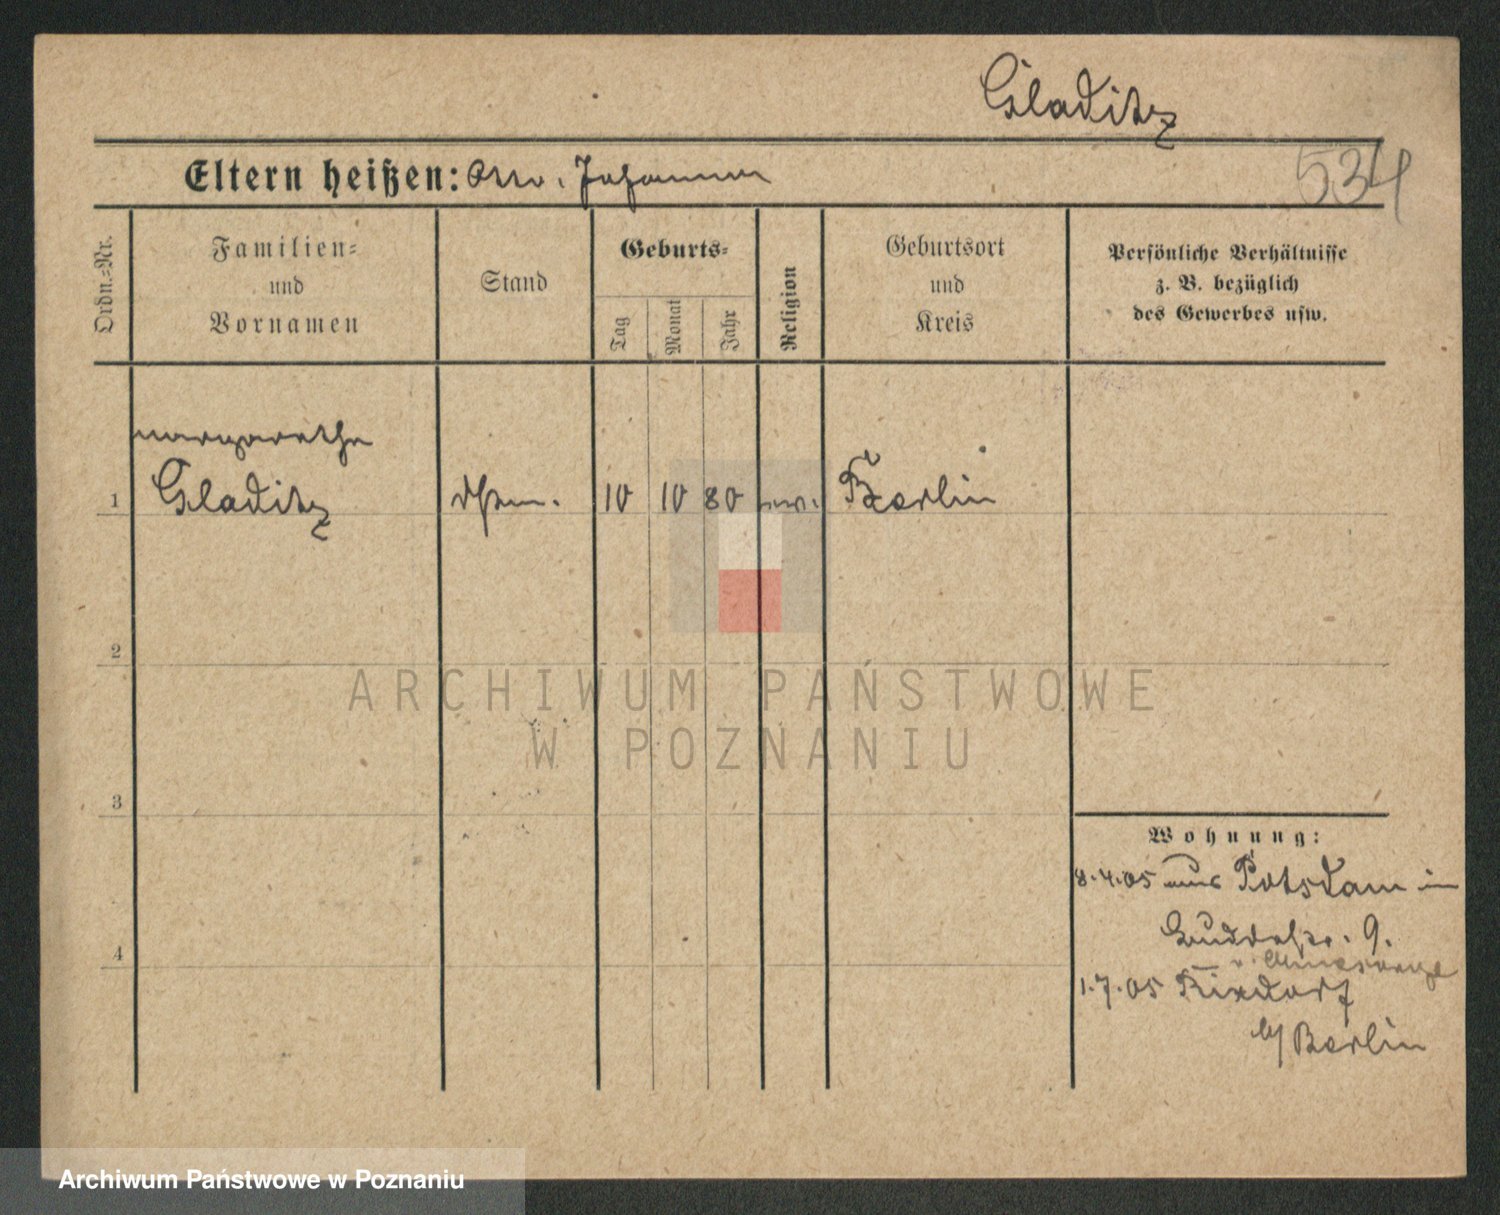 Gladitz
534
Eltern heißen: Otto. Johanna
Ordn.-Nr.
Familien-
und
Vornamen
Stand
Geburts-
Tag
Monat
Jahr
Religion
Geburtsort
und
Kreis
Persönliche Verhältnisse
z. B. bezüglich
des Gewerbes usw.
Margarethe
1 Gladitz 10 10 80 ev. Berlin
2
3
4
ARCHIWUM PAŃSTWOWE
W POZNANIU
Wohnung:
8.4.05 aus Potsdam in
9.
1.7.05 Rixdorf
b/ Berlin
Archiwum Państwowe w Poznaniu